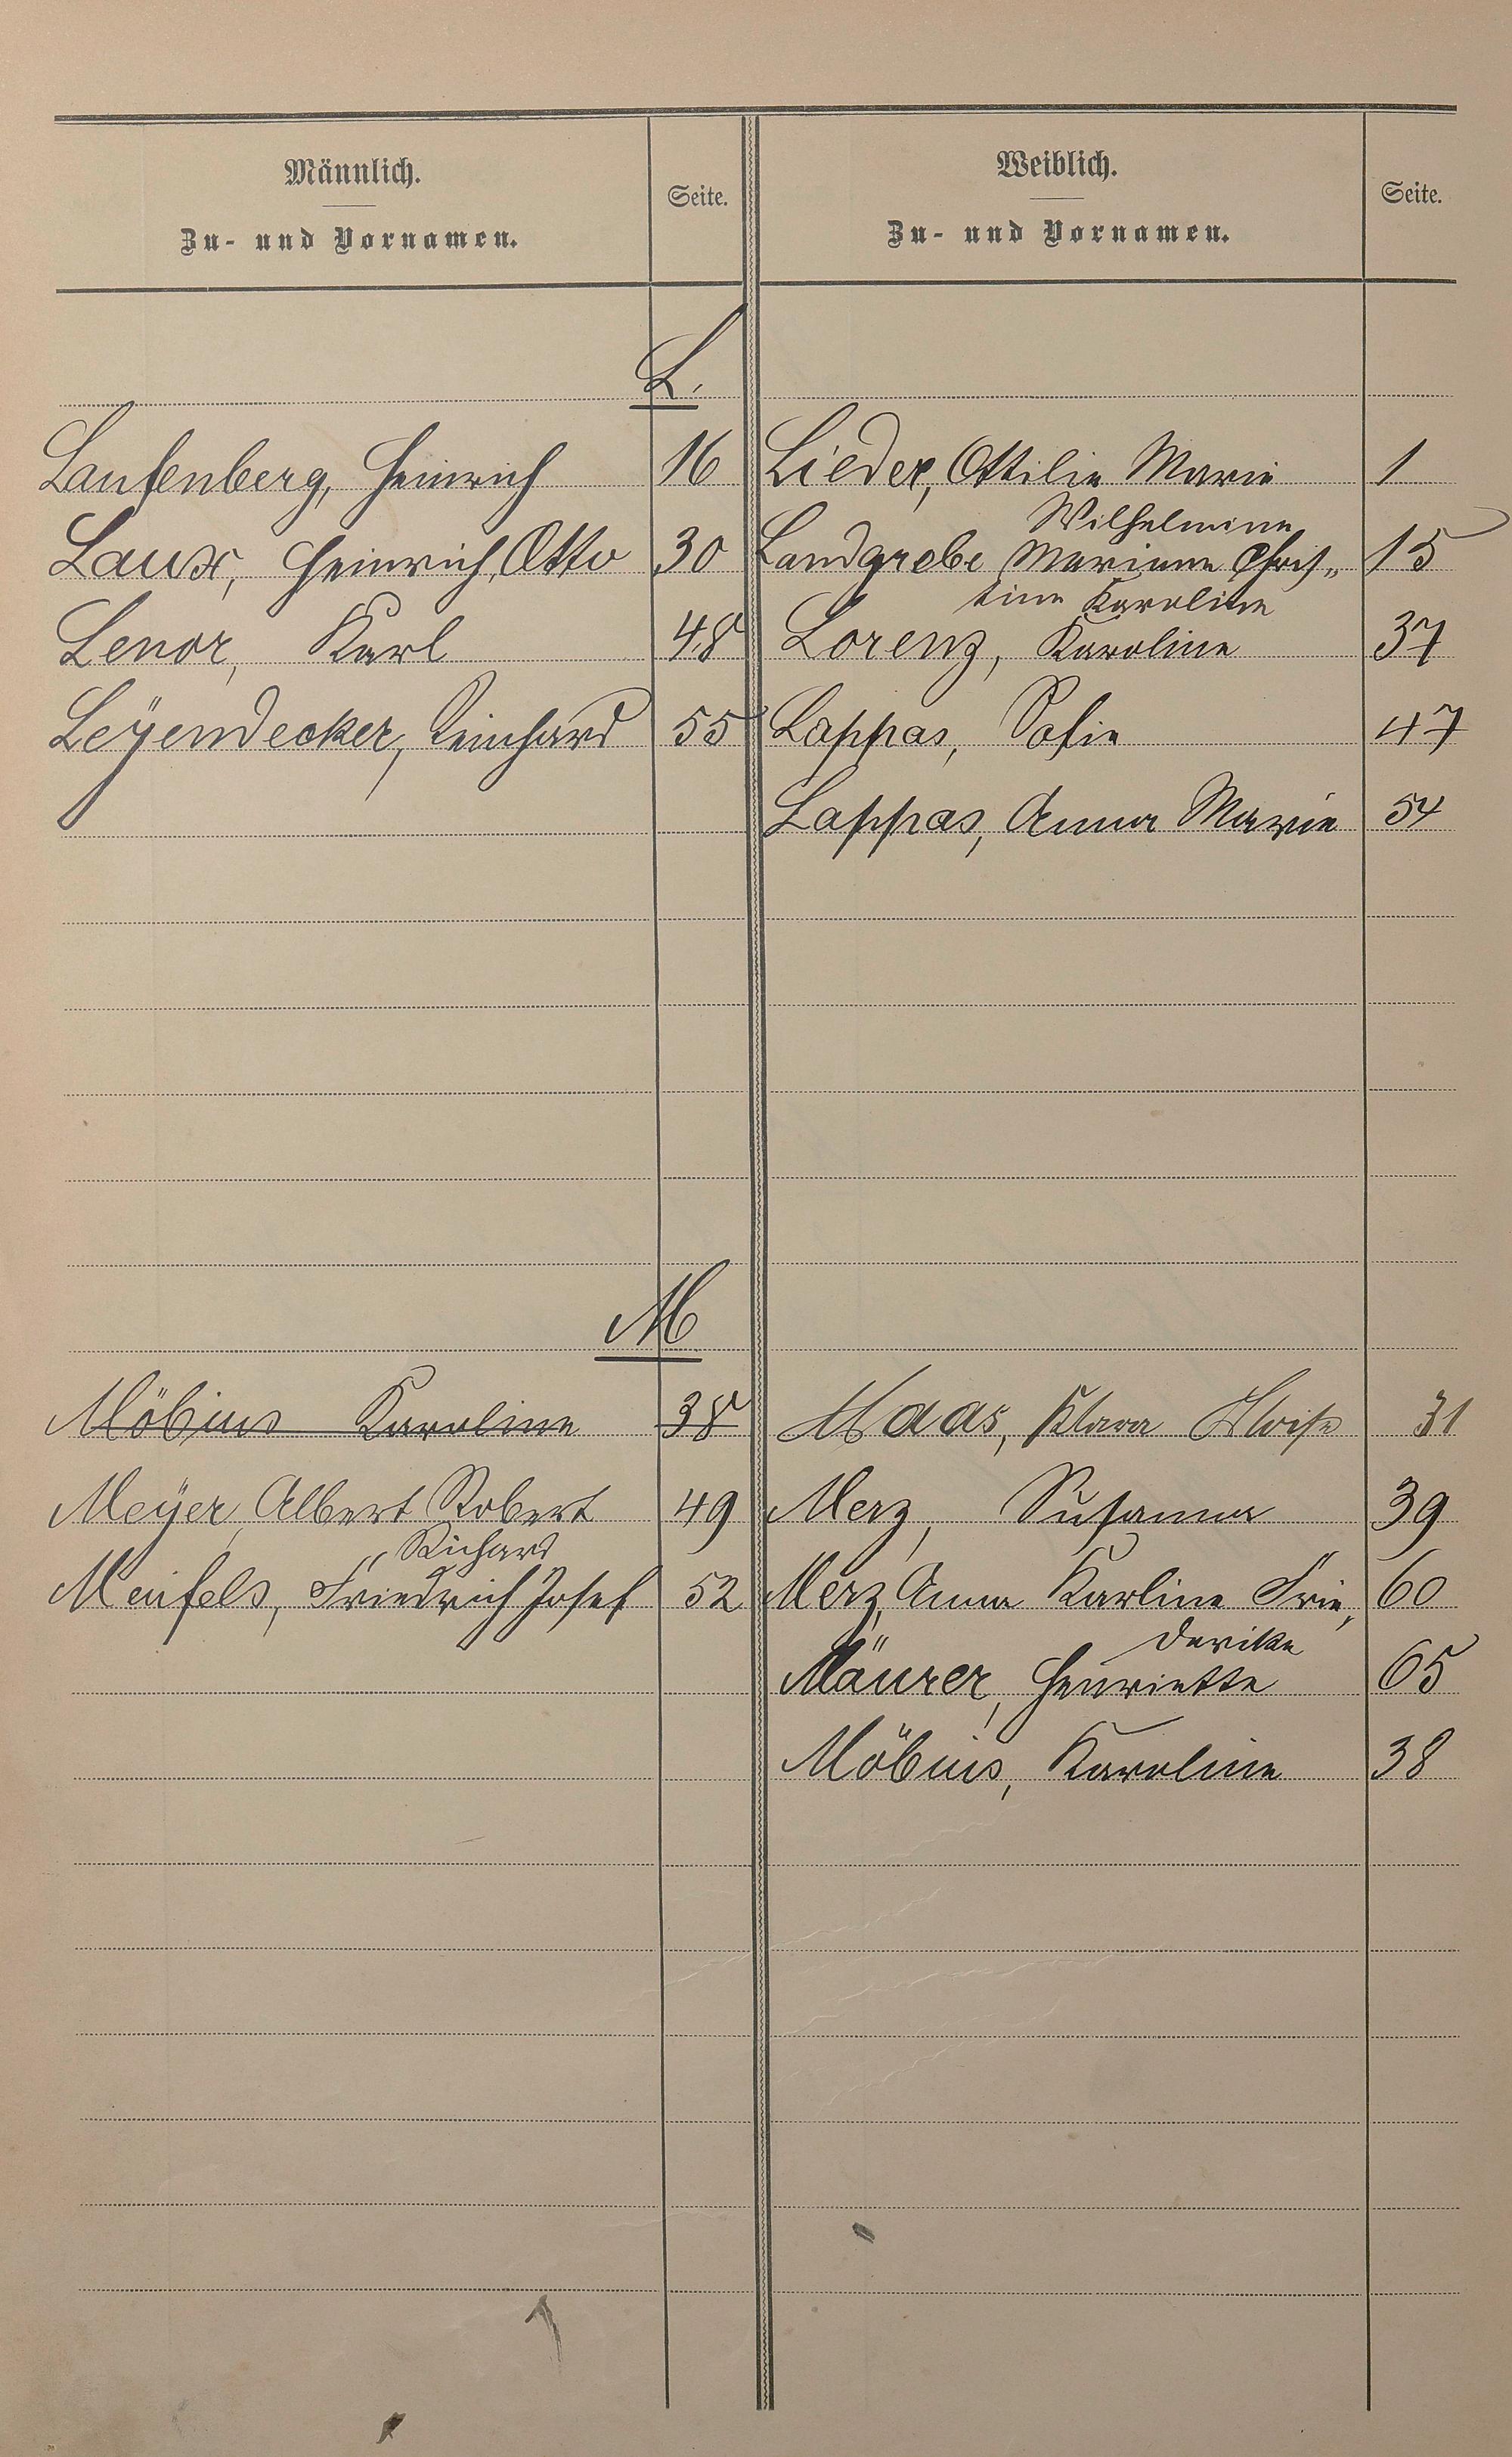 Männlich.
Zu- und Vornamen.
Seite.
Weiblich.
Zu- und Vornamen.
Seite.
L.
Laufenberg, Heinrich 16
Laux, Heinrich Otto 30
Lenor, Karl 48
Leÿendecker, Reinhard 55
Lieder, Ottilie Marie 1
Wilhelmine
Landgrebe Mariane Chris„ 15
tine Karoline
Lorenz, Karoline 37
Lappas, Sofie 47
Lappas, Anna Marie 54
M
Möbius Karoline 38
Meÿer, Albert Robert 49
Richard
Meifels, Friedrich Josef 52
Maas, Klara 31
Merz, Susanna 39
Merz, Anna Karline Frie„ 60
derike
Mäurer, Henriette 65
Möbius, Karoline 38